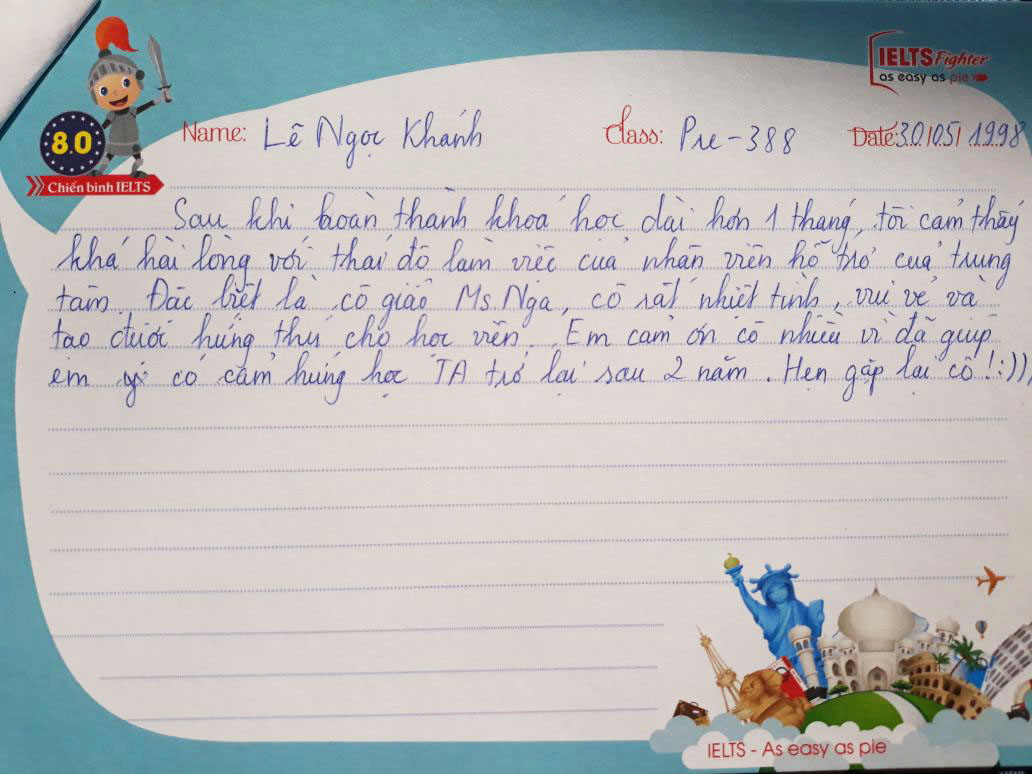 IELTS Fighter
as easy as pie
8.0
Chiến binh IELTS
Name: Lê Ngọc Khánh Class: Pre-388 Date: 30/05/1998
Sau khi hoàn thành khoá học dài hơn 1 tháng, tôi cảm thấy
khá hài lòng với thái độ làm việc của nhân viên hỗ trợ của trung
tâm. Đặc biệt là cô giáo Ms. Nga, cô rất nhiệt tình, vui vẻ và
tạo được hứng thú cho học viên. Em cảm ơn cô nhiều vì đã giúp
em có cảm hứng học TA trở lại sau 2 năm. Hẹn gặp lại cô! :)),
IELTS - As easy as pie